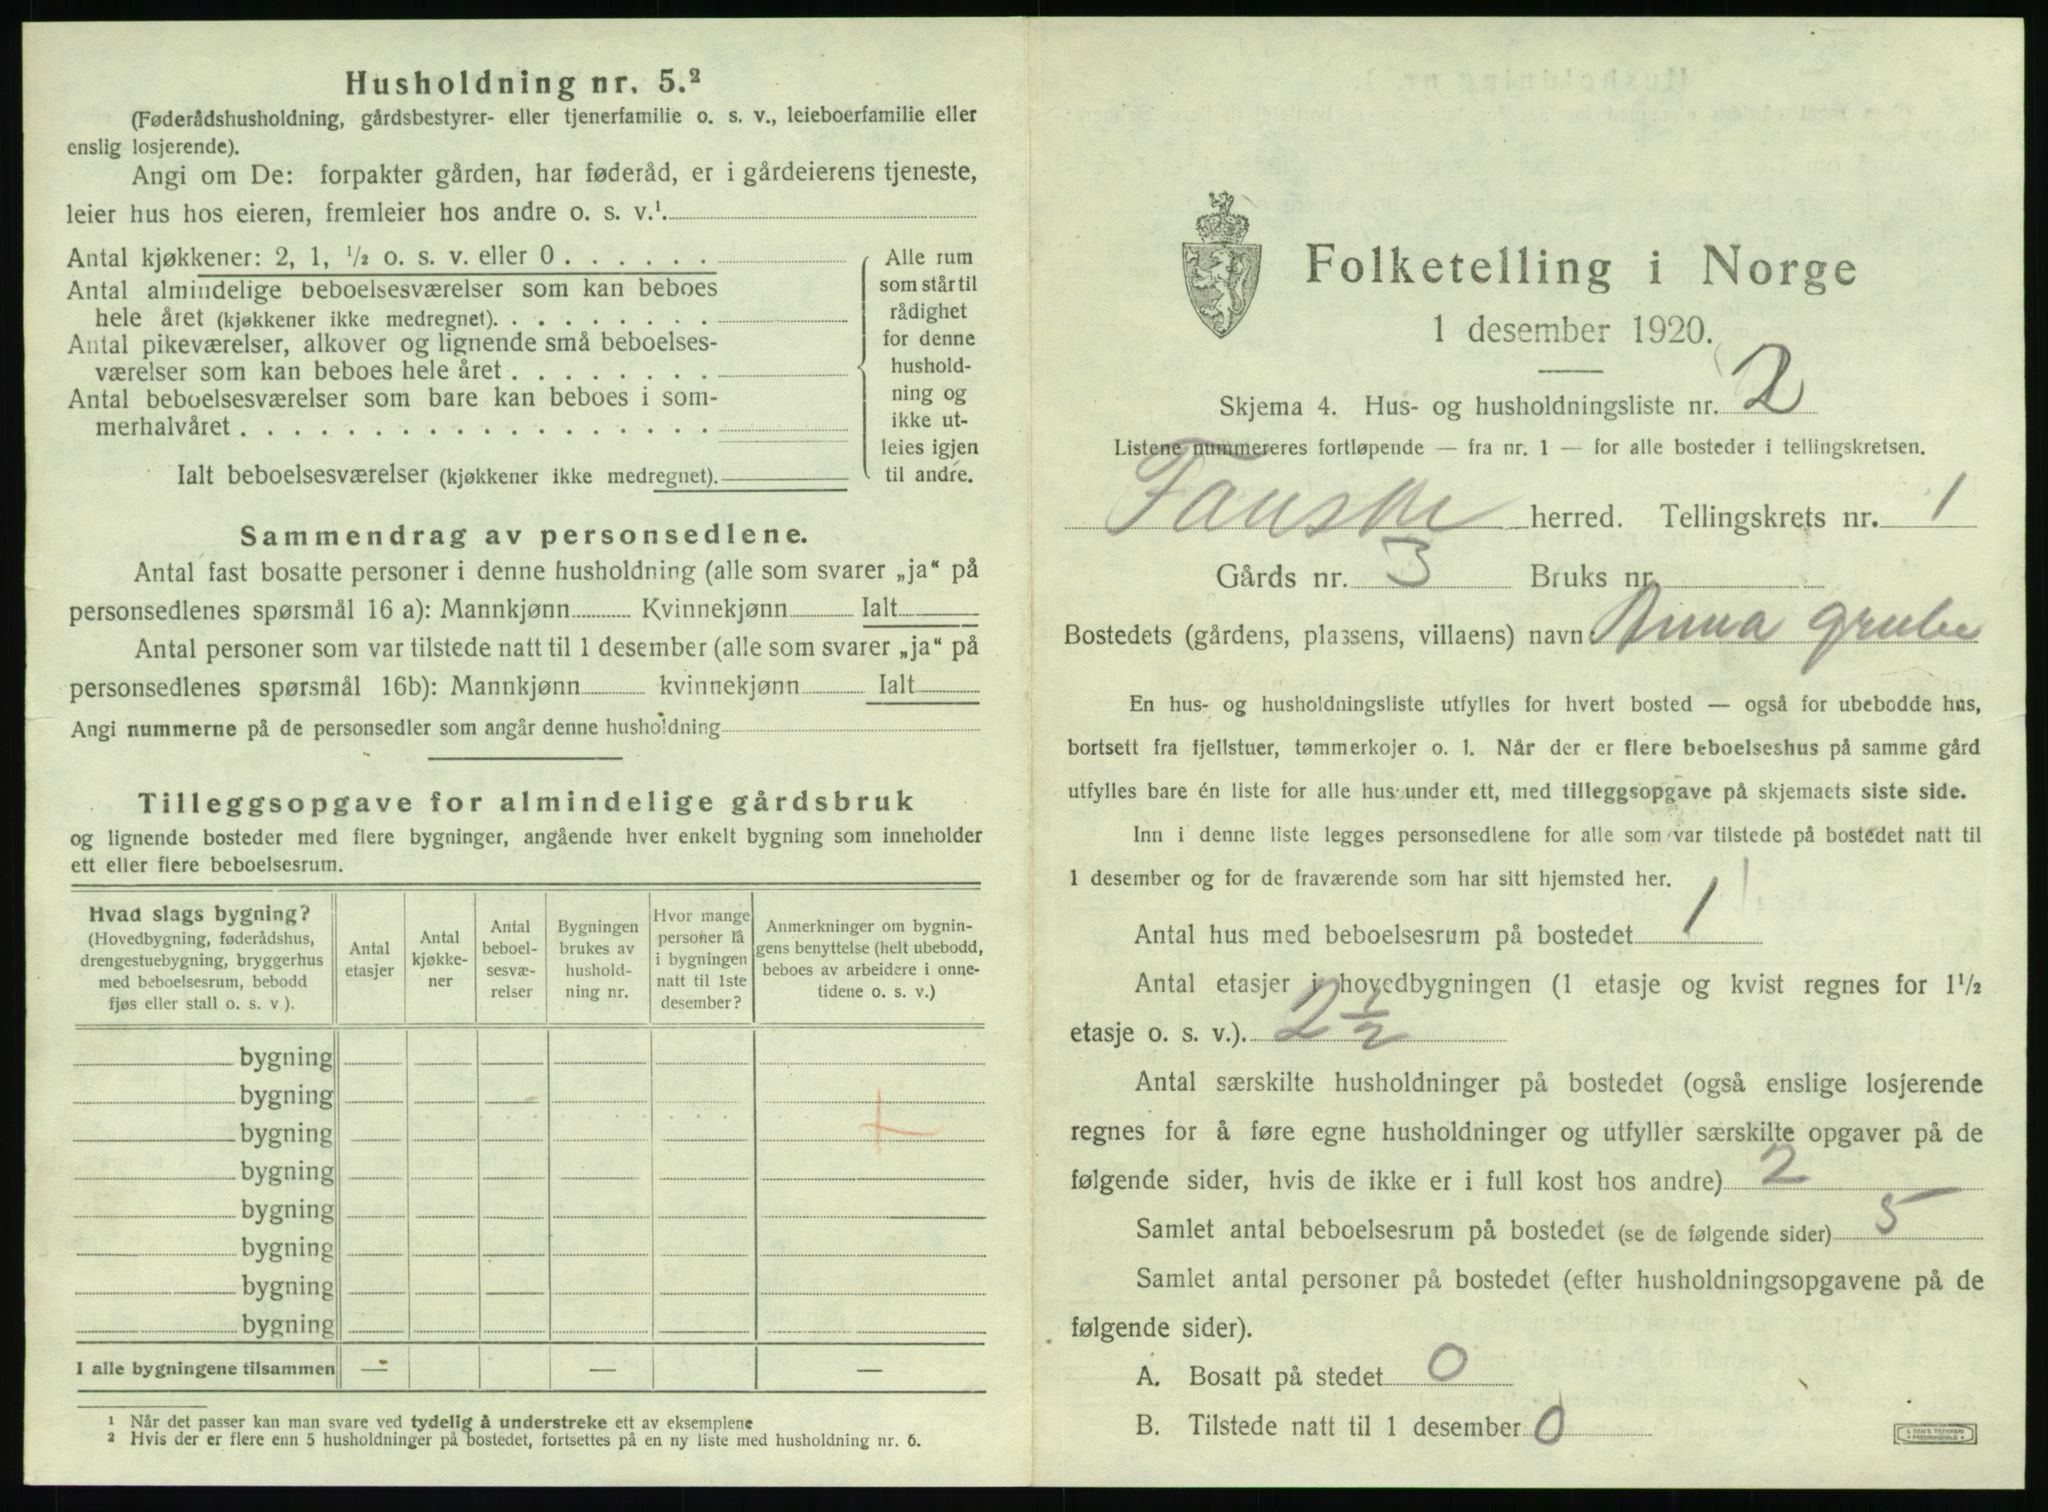 Husholdning nr. 5.²
(Føderådshusholdning, gårdsbestyrer- eller tjenerfamilie o. s. v., leieboerfamilie eller
enslig losjerende).
Angi om De: forpakter gården, har føderåd, er i gårdeierens tjeneste,
leier hus hos eieren, fremleier hos andre o. s. v.¹
Antal kjøkkener: 2, 1, ½ o. s. v. eller 0 . . . . . .
Antal almindelige beboelsesværelser som kan beboes
hele året (kjøkkener ikke medregnet). . . . . . . . .
Antal pikeværelser, alkover og lignende små beboelses-
værelser som kan beboes hele året . . . . . . . .
Antal beboelsesværelser som bare kan beboes i som-
merhalvåret . . . . . . . . . . . . . . . . . .
Ialt beboelsesværelser (kjøkkener ikke medregnet).
Alle rum
som står til
rådighet
for denne
hushold-
ning og
ikke ut-
leies igjen
til andre.
Sammendrag av personsedlene.
Antal fast bosatte personer i denne husholdning (alle som svarer „ja“ på
personsedlenes spørsmål 16 a): Mannkjønn Kvinnekjønn Ialt
Antal personer som var tilstede natt til 1 desember (alle som svarer „ja“ på
personsedlenes spørsmål 16b): Mannkjønn kvinnekjønn Ialt
Angi nummerne på de personsedler som angår denne husholdning
Tilleggsopgave for almindelige gårdsbruk
og lignende bosteder med flere bygninger, angående hver enkelt bygning som inneholder
ett eller flere beboelsesrum.
Hvad slags bygning?
(Hovedbygning, føderådshus,
drengestuebygning, bryggerhus
med beboelsesrum, bebodd
fjøs eller stall o. s. v ).
Antal
etasjer
Antal
kjøkke-
ner
Antal
beboel-
sesvæ-
relser
Bygningen
brukes av
hushold-
ning nr.
Hvor mange
personer lå
i bygningen
natt til 1ste
desember?
Anmerkninger om bygnin-
gens benyttelse (helt ubebodd,
beboes av arbeidere i onne-
tidene o. s. v.)
bygning
bygning
bygning
bygning
bygning
bygning
bygning
bygning
I alle bygningene tilsammen — — —
¹ Når det passer kan man svare ved tydelig å understreke ett av eksemplene
² Hvis der er flere enn 5 husholdninger på bostedet, fortsettes på en ny liste med husholdning nr. 6.
Folketelling i Norge
1 desember 1920.
Skjema 4. Hus- og husholdningsliste nr. 2
Listene nummereres fortløpende — fra nr. 1 — for alle bosteder i tellingskretsen.
Fauske herred. Tellingskrets nr. 1
Gårds nr. 3 Bruks nr.
Bostedets (gårdens, plassens, villaens) navn: Anna grube
En hus- og husholdningsliste utfylles for hvert bosted — også for ubebodde hus,
bortsett fra fjellstuer, tømmerkojer o. l. Når der er flere beboelseshus på samme gård
utfylles bare én liste for alle hus under ett, med tilleggsopgave på skjemaets siste side.
Inn i denne liste legges personsedlene for alle som var tilstede på bostedet natt til
1 desember og for de fraværende som har sitt hjemsted her.
Antal hus med beboelsesrum på bostedet 1
Antal etasjer i hovedbygningen (1 etasje og kvist regnes for 1½
etasje o. s. v.). 2½
Antal særskilte husholdninger på bostedet (også enslige losjerende
regnes for å føre egne husholdninger og utfyller særskilte opgaver på de
følgende sider, hvis de ikke er i full kost hos andre) 2
Samlet antal beboelsesrum på bostedet (se de følgende sider) 5
Samlet antal personer på bostedet (efter husholdningsopgavene på de
følgende sider).
A. Bosatt på stedet 0
B. Tilstede natt til 1 desember 0